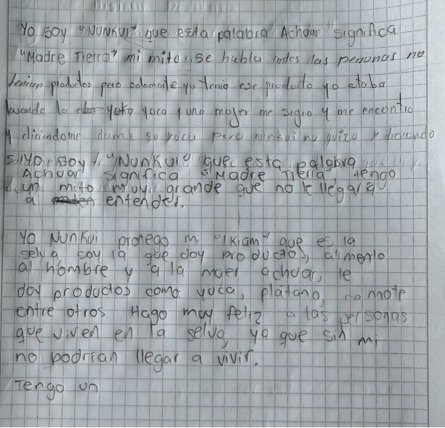 Yo soy "Nunkui" que esta palabra Achuar significa
"Madre Tierra" mi mito se habla antes las personas no
tenian productos pero solamente yo tenia ese producto yo estaba
lavando la yuca y una mujer me sigio y me encontro
y diciendome dame su yuca pero nunkui no quizo y diciendo
si Yo soy "Nunkui" que esta palabra
Achuar significa "Madre Tierra" tengo
un mito muy grande que no le llegará
a entender.
Yo Nunkui protego mi "Ikiam" que es la
selva soy la que doy productos, alimento
al hombre y a la mujer achuar, le
doy productos como yuca, platano, camote
entre otros. Hago muy feliz a las personas
que viven en la selva, ya que sin mi
no podrian llegar a vivir.
Tengo un